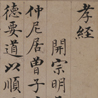 孝經
開宗明
仲尼居曾子
德要道以順